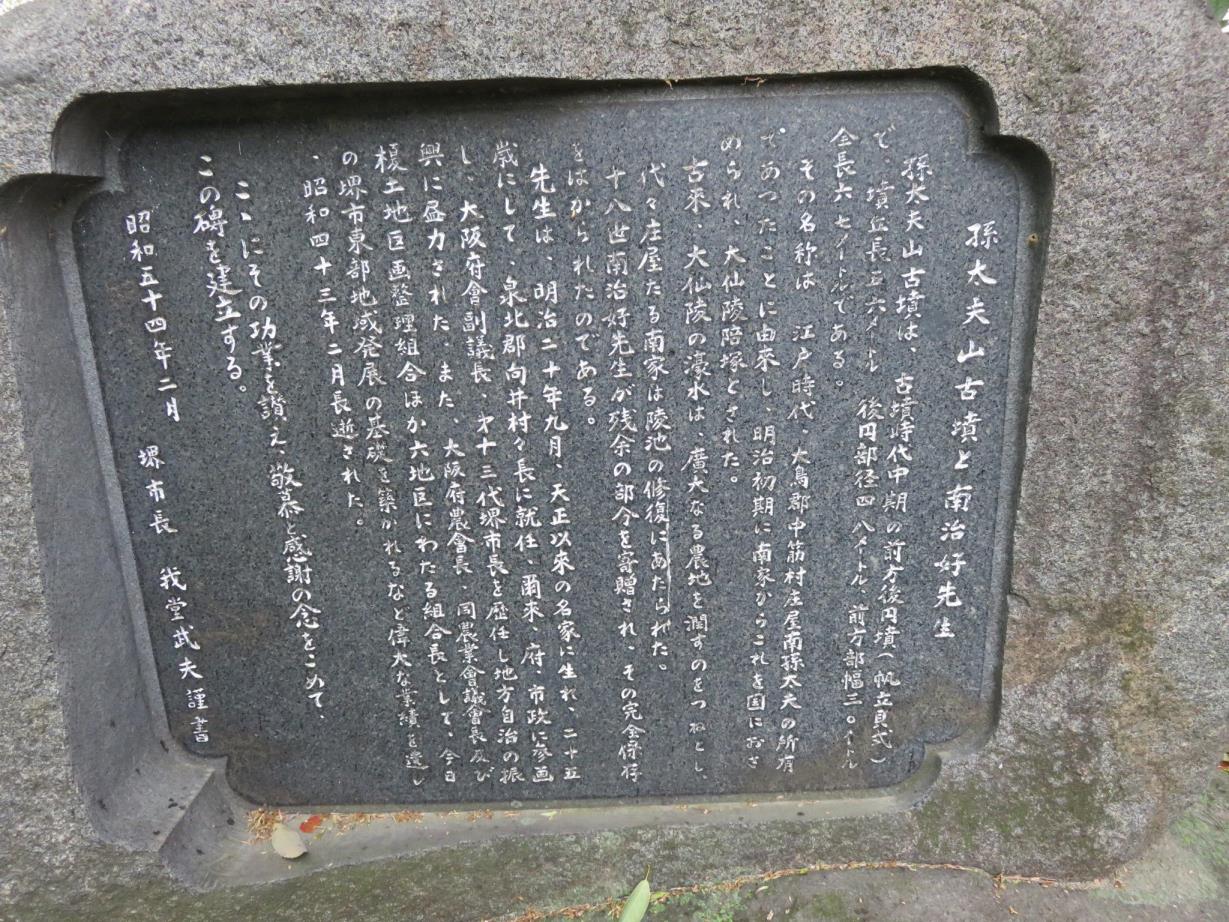 孫太夫山古墳と南治好先生
孫太夫山古墳は、古墳時代中期の前方後円墳(帆立貝式)
で、墳丘長五六メートル 後円部径四八メートル、前方部幅三〇メートル
全長六七メートルである。
その名称は 江戸時代、大鳥郡中筋村庄屋南孫太夫の所有
であつたことに由来し、明治初期に南家からこれを国におさ
められ、大仙陵陪塚とされた。
古来、大仙陵の濠水は、廣大なる農地を潤すのをつねとし、
代々庄屋たる南家は陵池の修復にあたられた。
十八世南治好先生が残余の部分を寄贈され、その完全保存
をはかられたのである。
先生は、明治二十年九月、天正以来の名家に生れ、二十五
歳にして、泉北郡向井村々長に就任、爾来、府、市政に参画
し、大阪府會副議長、才十三代堺市長を歴任し地方自治の振
興に盡力された、また、大阪府農會長、同農業會議會長及び
榎土地区画整理組合ほか六地区にわたる組合長として、今日
の堺市東部地域発展の基礎を築かれるなど偉大な業績を遺し
、昭和四十三年二月長逝された。
こゝにその功業を讃え、敬慕と感謝の念をこめて、
この碑を建立する。
昭和五十四年二月 堺市長 我堂武夫 謹書